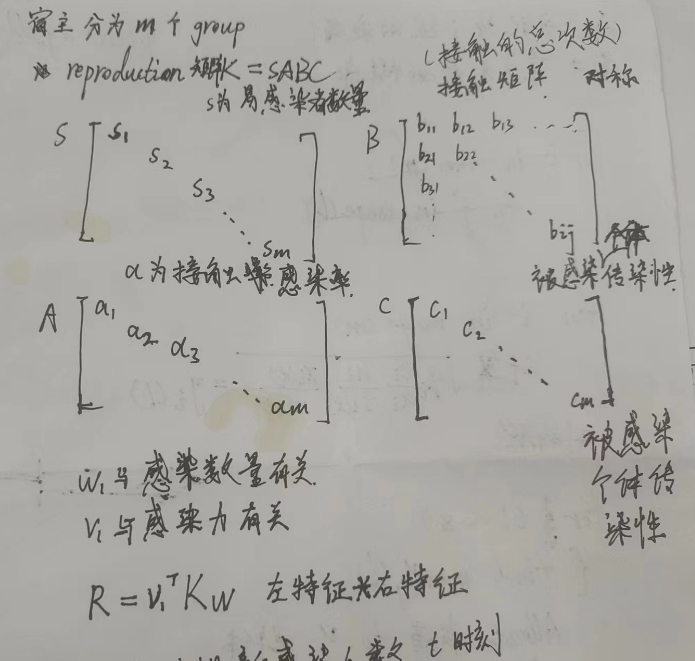 宿主分为m个group
reproduction 矩阵K=SABC
S为易感染者数量
(接触的总次数)
接触矩阵 对称
S [ s1 s2 s3 ⋱ sm ]
B [ b11 b12 b13 ...
b21 b22
b31
⋱ bij ]
a为接触 感染率
被感染个体传染性
A [ a1 a2 a3 ⋱ am ]
C [ c1 c2 ⋱ cm ]
被感染
个体传
染性
w1与感染数量有关
v1与感染力有关
R = v1ᵀKw 左特征 右特征
感染人数 t时刻